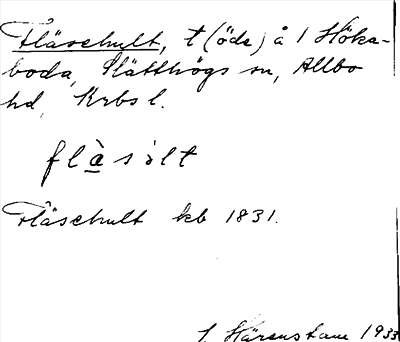 Fläschult, t (öde) å 1 Höka-
boda, Slätthögs sn, Allbo
hd, Krbs l.
flàsult
Fläschult kb 1831.
J. Härenstam 1933